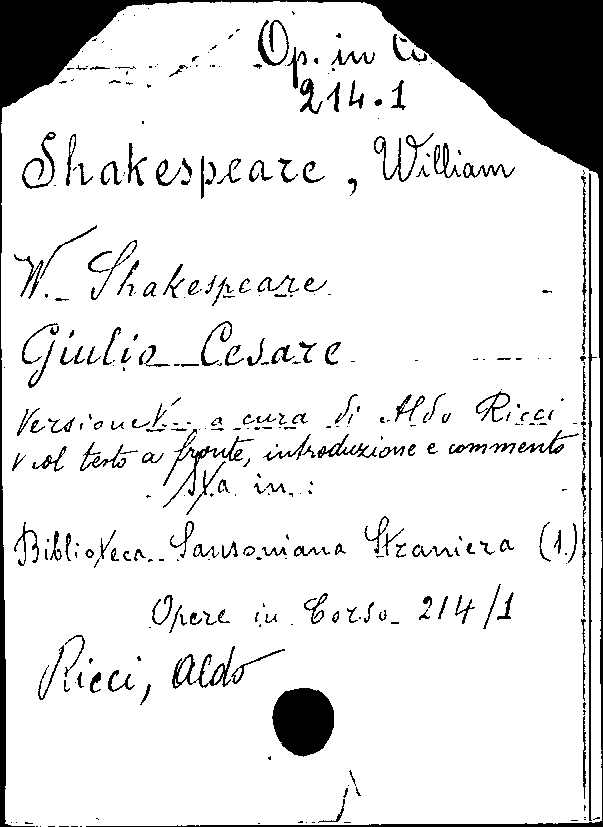 Op. in Co
214.1
Shakespeare, William
W. Shakespeare
Giulio Cesare
Versione V a cura di Aldo Ricci
V col testo a fronte, introduzione e commento
Sta in:
Biblioteca Sansoniana Straniera (1.)
Opere in Corso 214/1
Ricci, Aldo